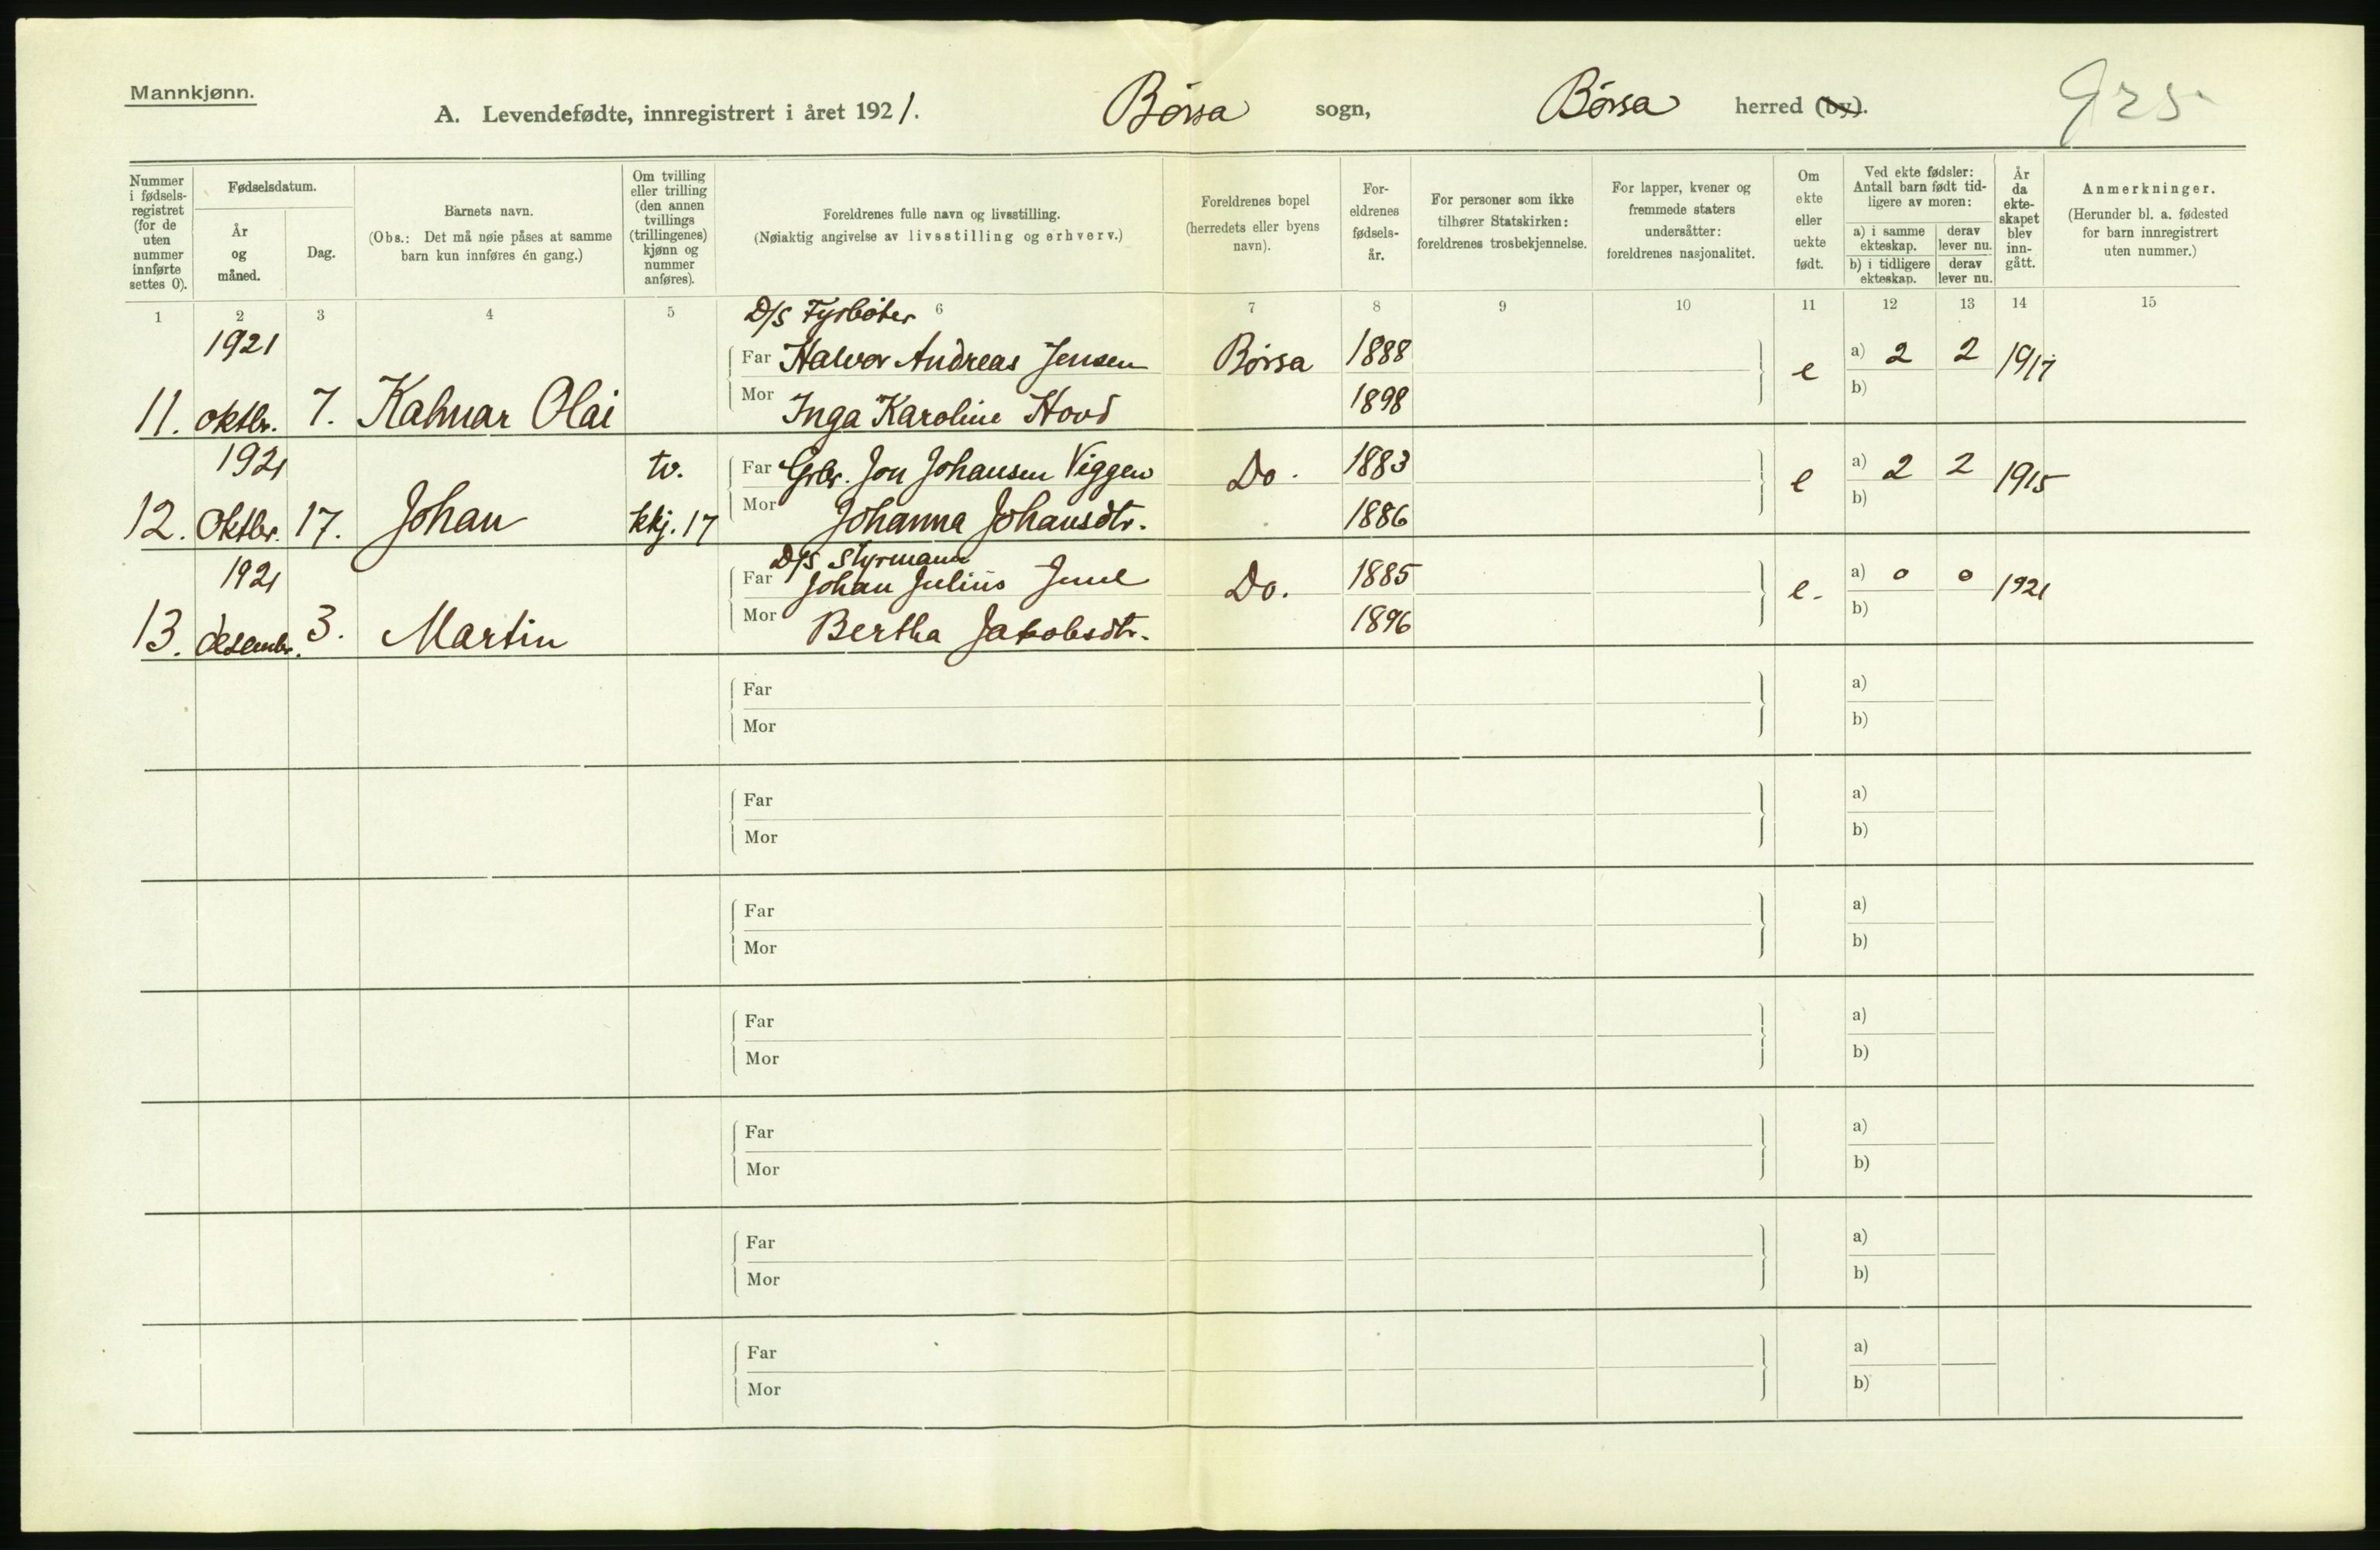 Mannkjønn.
A. Levendefødte, innregistrert i året 1921. Børsa sogn, Børsa herred (by). 925
Nummer i fødselsregistret (for de uten nummer innførte settes 0).
Fødselsdatum.
År og måned.
Dag.
Barnets navn.
(Obs.: Det må nøie påses at samme barn kun innføres én gang.)
Om tvilling eller trilling (den annen tvillings (trillingenes) kjønn og nummer anføres).
Foreldrenes fulle navn og livsstilling.
(Nøiaktig angivelse av livsstilling og erhverv.)
Foreldrenes bopel (herredets eller byens navn).
Foreldrenes fødselsår.
For personer som ikke tilhører Statskirken: foreldrenes trosbekjennelse.
For lapper, kvener og fremmede staters undersåtter: foreldrenes nasjonalitet.
Om ekte eller uekte født.
Ved ekte fødsler: Antall barn født tidligere av moren:
a) i samme ekteskap. derav lever nu.
b) i tidligere ekteskap. derav lever nu.
År da ekteskapet blev inngått.
Anmerkninger.
(Herunder bl. a. fødested for barn innregistrert uten nummer.)
1 2 3 4 5 6 7 8 9 10 11 12 13 14 15
D/S Fyrbøter
1921 Far Halvor Andreas Jensen Børsa 1888 e a) 2 2 1917
11. oktbr. 7. Kalmar Olai Mor Inga Karoline Hovd 1898 b)
1921 tv. Far Grbr. Jon Johansen Viggen Do. 1883 e a) 2 2 1915
12. Oktbr. 17. Johan kkj. 17 Mor Johanna Johansdtr. 1886 b)
D/S Styrmann
1921 Far Johan Julius Juul Do. 1885 e. a) 0 0 1921
13. desembr. 3. Martin Mor Bertha Jakobsdtr. 1896 b)
Far a)
Mor b)
Far a)
Mor b)
Far a)
Mor b)
Far a)
Mor b)
Far a)
Mor b)
Far a)
Mor b)
Far a)
Mor b)